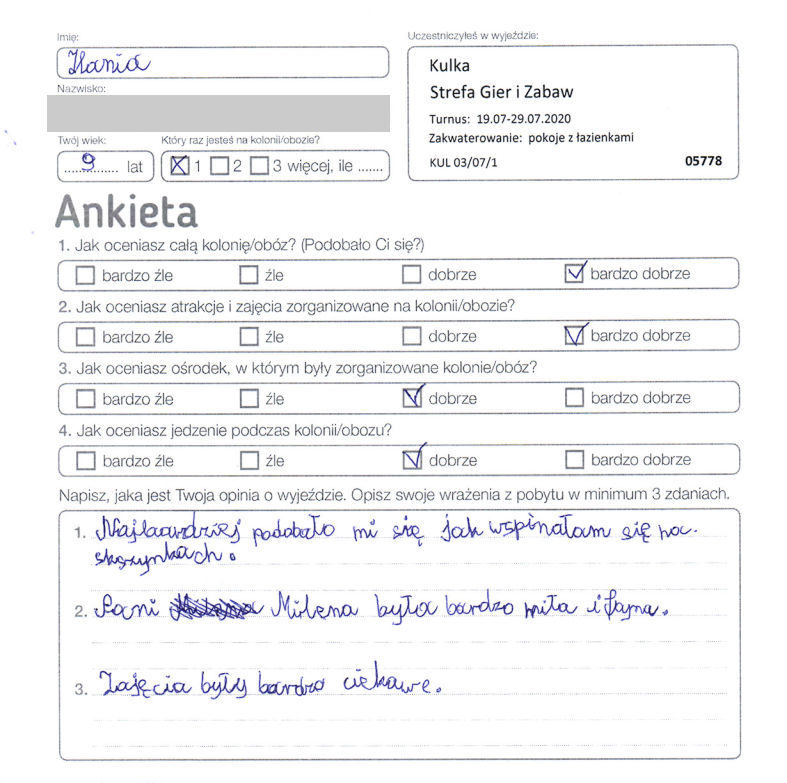 Imię:
Hania
Nazwisko:
Twój wiek:
9 lat
Który raz jesteś na kolonii/obozie?
1 2 3 więcej, ile .......
Uczestniczyłeś w wyjeździe:
Kulka
Strefa Gier i Zabaw
Turnus: 19.07-29.07.2020
Zakwaterowanie: pokoje z łazienkami
KUL 03/07/1 05778
Ankieta
1. Jak oceniasz całą kolonię/obóz? (Podobało Ci się?)
bardzo źle źle dobrze bardzo dobrze
2. Jak oceniasz atrakcje i zajęcia zorganizowane na kolonii/obozie?
bardzo źle źle dobrze bardzo dobrze
3. Jak oceniasz ośrodek, w którym były zorganizowane kolonie/obóz?
bardzo źle źle dobrze bardzo dobrze
4. Jak oceniasz jedzenie podczas kolonii/obozu?
bardzo źle źle dobrze bardzo dobrze
Napisz, jaka jest Twoja opinia o wyjeździe. Opisz swoje wrażenia z pobytu w minimum 3 zdaniach.
1. Najbardziej podobało mi się jak wspinałam się na
skrzynkach.
2. Pani Milena była bardzo miła i fajna.
3. Zajęcia były bardzo ciekawe.